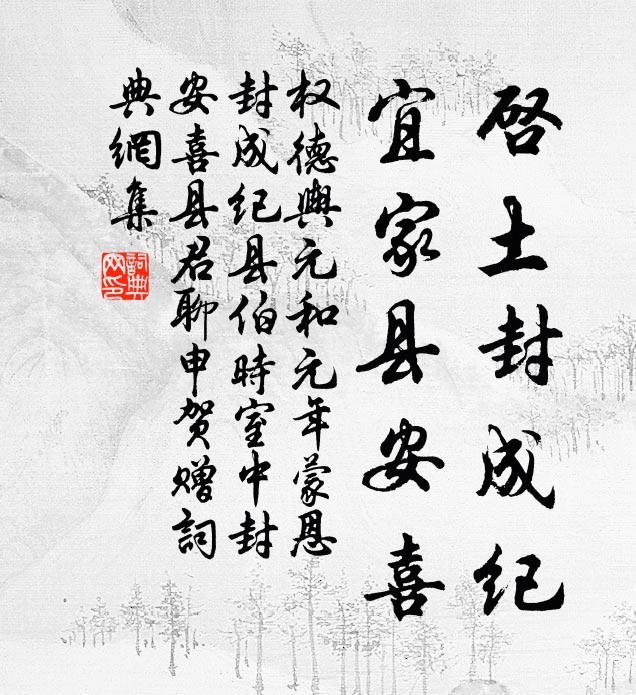 启土封成纪
宜家县安喜
权德舆元和元年蒙恩
封成纪县伯时室中封
安喜县君聊申贺赠词
典網集
詞典
网印